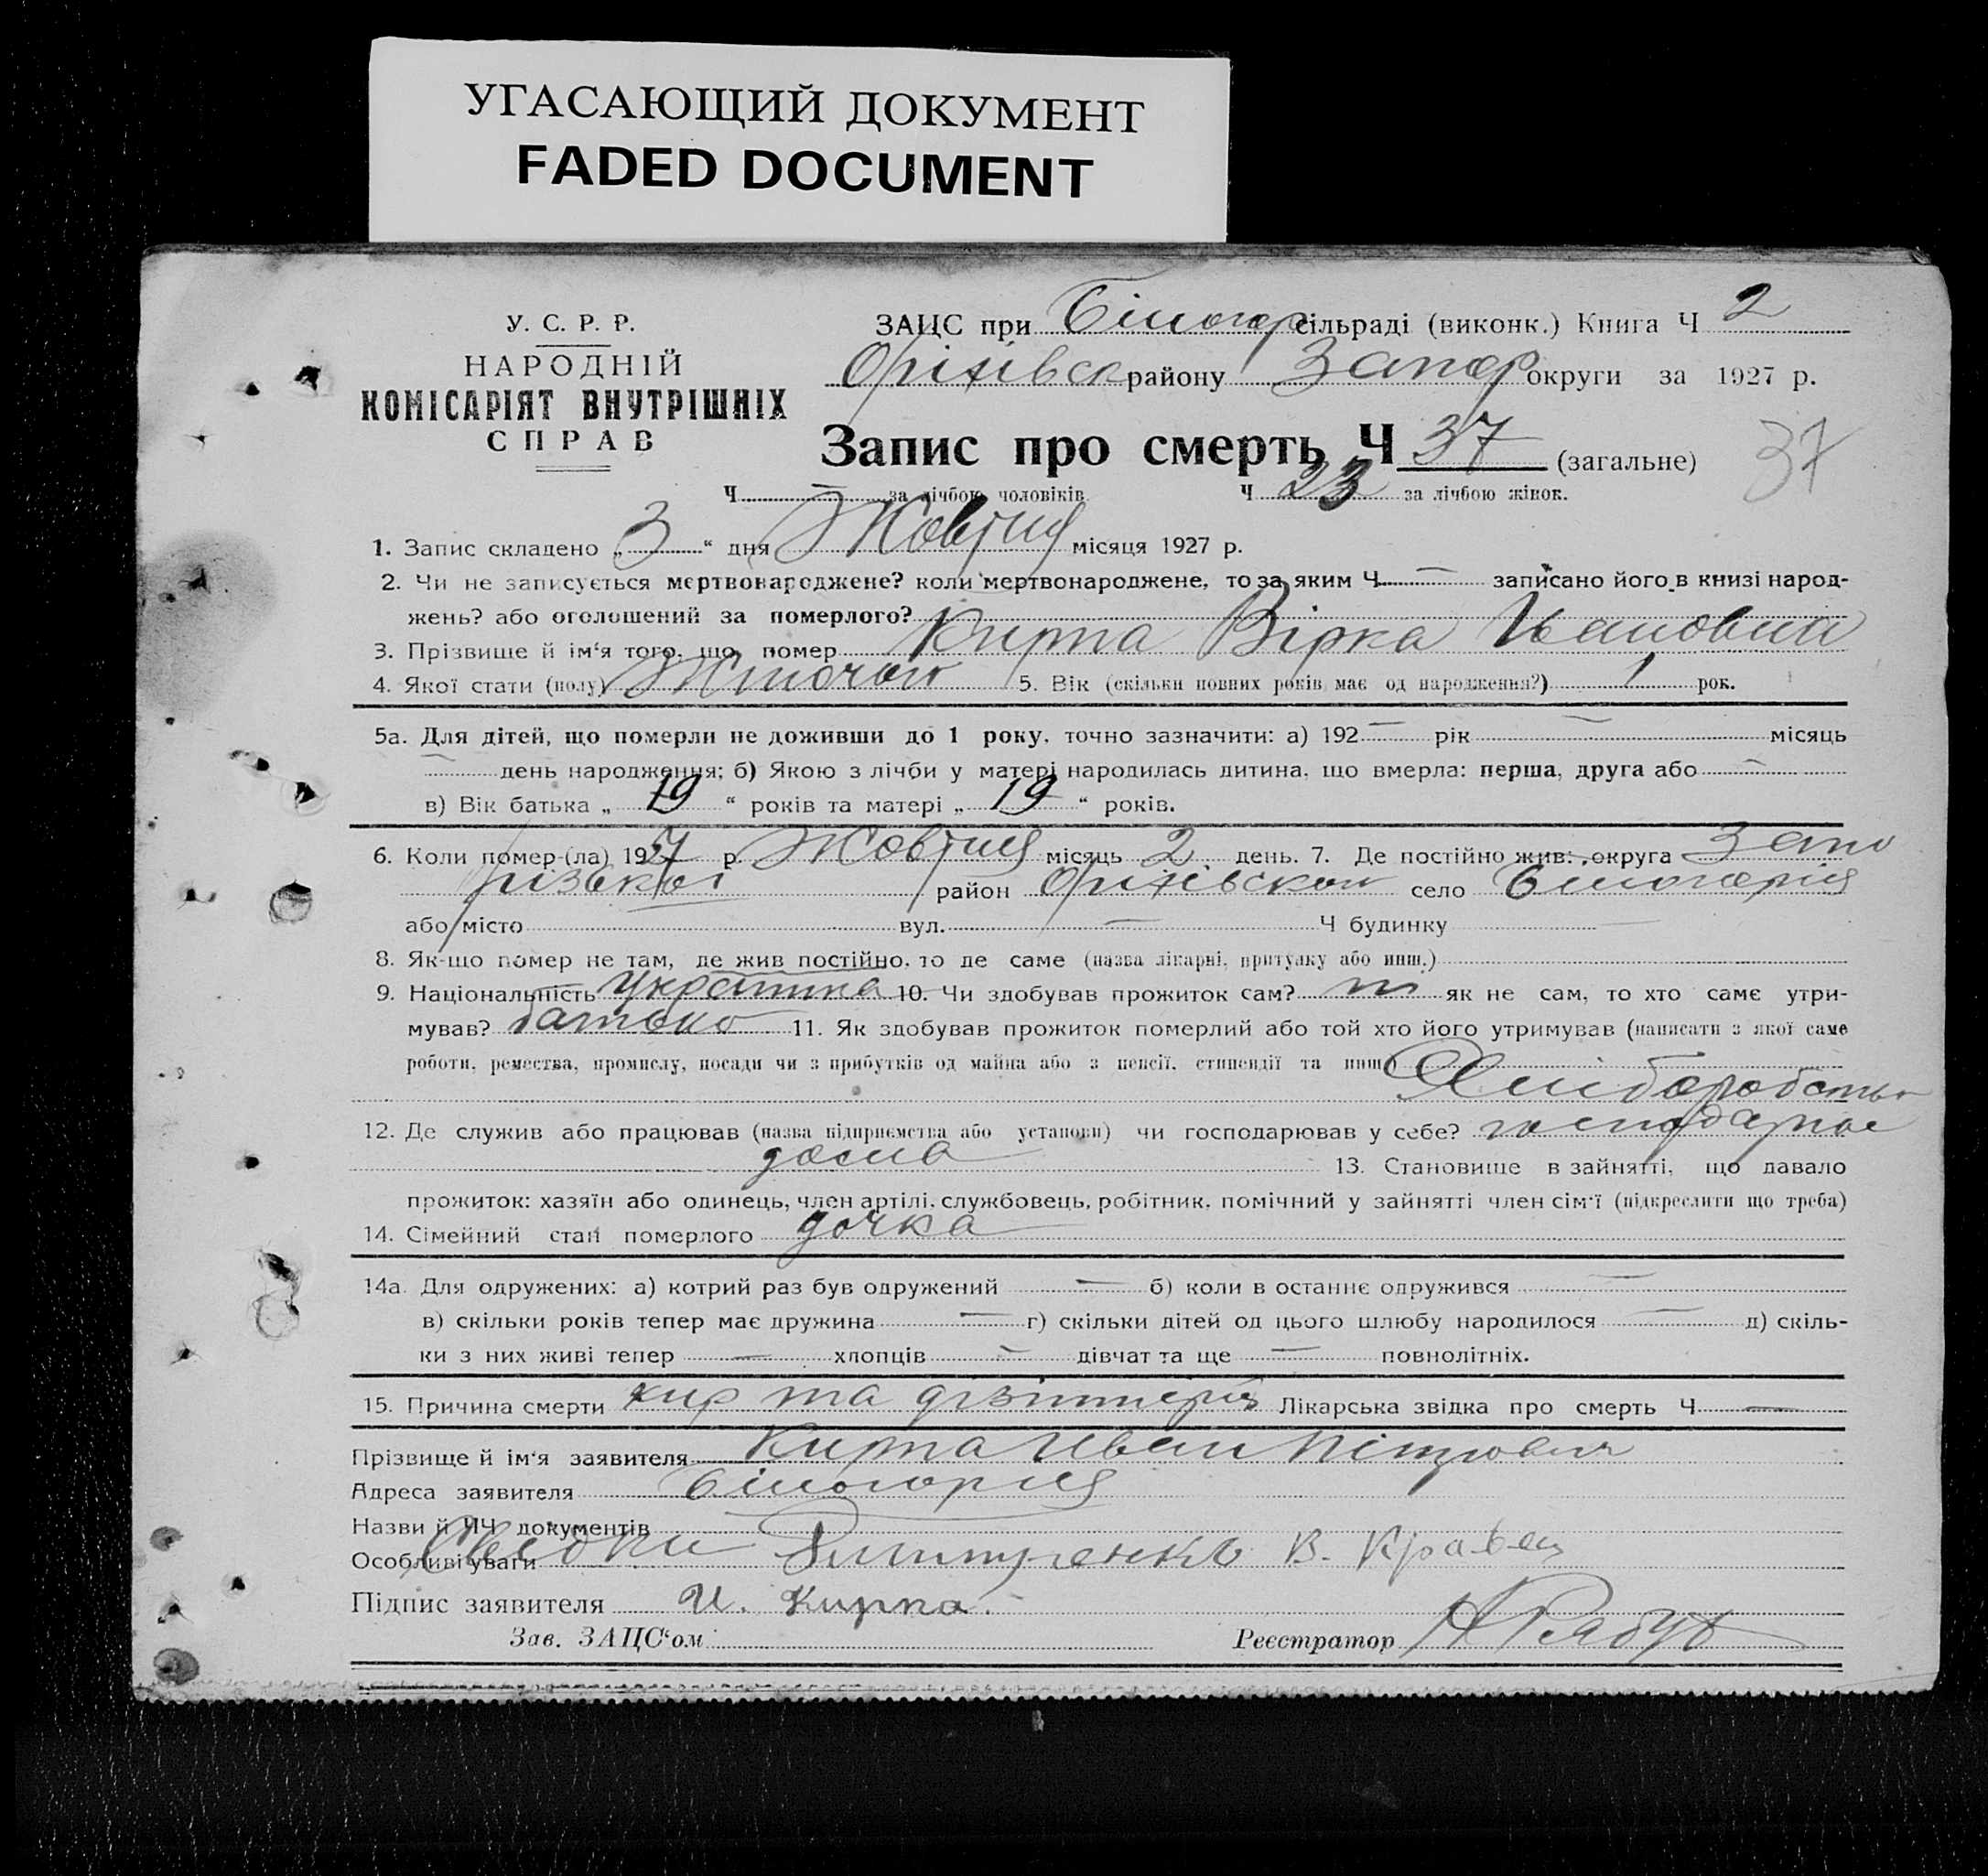 УГАСАЮЩИЙ ДОКУМЕНТ
FADED DOCUMENT
У. С. Р. Р.
НАРОДНІЙ
КОМІСАРІЯТ ВНУТРІШНІХ
СПРАВ
ЗАЦС при Білогор сільраді (виконк.) Книга Ч 2
Оріхівск району Запор округи за 1927 р.
Запис про смерть Ч 37 (загальне) 37
Ч — за лічбою чоловіків Ч 23 за лічбою жінок.
1. Запис складено „3“ дня Жовтня місяця 1927 р.
2. Чи не записується мертвонароджене? коли мертвонароджене, то за яким Ч — записано його в книзі народ-
жень? або оголошений за померлого?
3. Прізвище й ім'я того, що помер Кирпа Вірка Ивановна
4. Якої стати (полу) Жіночои 5. Вік (скільки повних років має од народження?) 1 рок.
5а. Для дітей, що померли не доживши до 1 року, точно зазначити: а) 192 — рік — місяць
— день народження; б) Якою з лічби у матері народилась дитина, що вмерла: перша, друга або —
в) Вік батька „ 19 “ років та матері „ 19 “ років.
6. Коли помер-(ла) 1927 р. Жовтня місяць 2 день. 7. Де постійно жив: округа Запо
різької район Оріхівскои село Білогория
або місто вул. — Ч будинку —
8. Як-що помер не там, де жив постійно, то де саме (назва лікарні, притулку або инш.)
9. Національність Українка 10. Чи здобував прожиток сам? ні як не сам, то хто саме утри-
мував? батько 11. Як здобував прожиток померлий або той хто його утримував (написати з якої саме
роботи, ремества, промислу, посади чи з прибутків од майна або з пенсії, стипендії та инш.) Хлиборобство
12. Де служив або працював (назва підприємства або установи) чи господарював у себе? господарює
дома 13. Становище в зайнятті, що давало
прожиток: хазяїн або одинець, член артілі, службовець, робітник, помічний у зайнятті член сім'ї (підкреслити що треба)
14. Сімейний стан померлого дочка
14а. Для одружених: а) котрий раз був одружений — б) коли в останнє одружився —
в) скільки років тепер має дружина — г) скільки дітей од цього шлюбу народилося — д) скіль-
ки з них живі тепер — хлопців — дівчат та ще — повнолітніх.
15. Причина смерти кир та дізінтерія Лікарська звідка про смерть Ч —
Прізвище й ім'я заявителя Кирпа Иван Пітрович
Адреса заявителя Білогория
Назви й ЧЧ документів
Особливі уваги Свідки В. Кравец
Підпис заявителя И. Кирпа.
Зав. ЗАЦС'ом Реєстратор